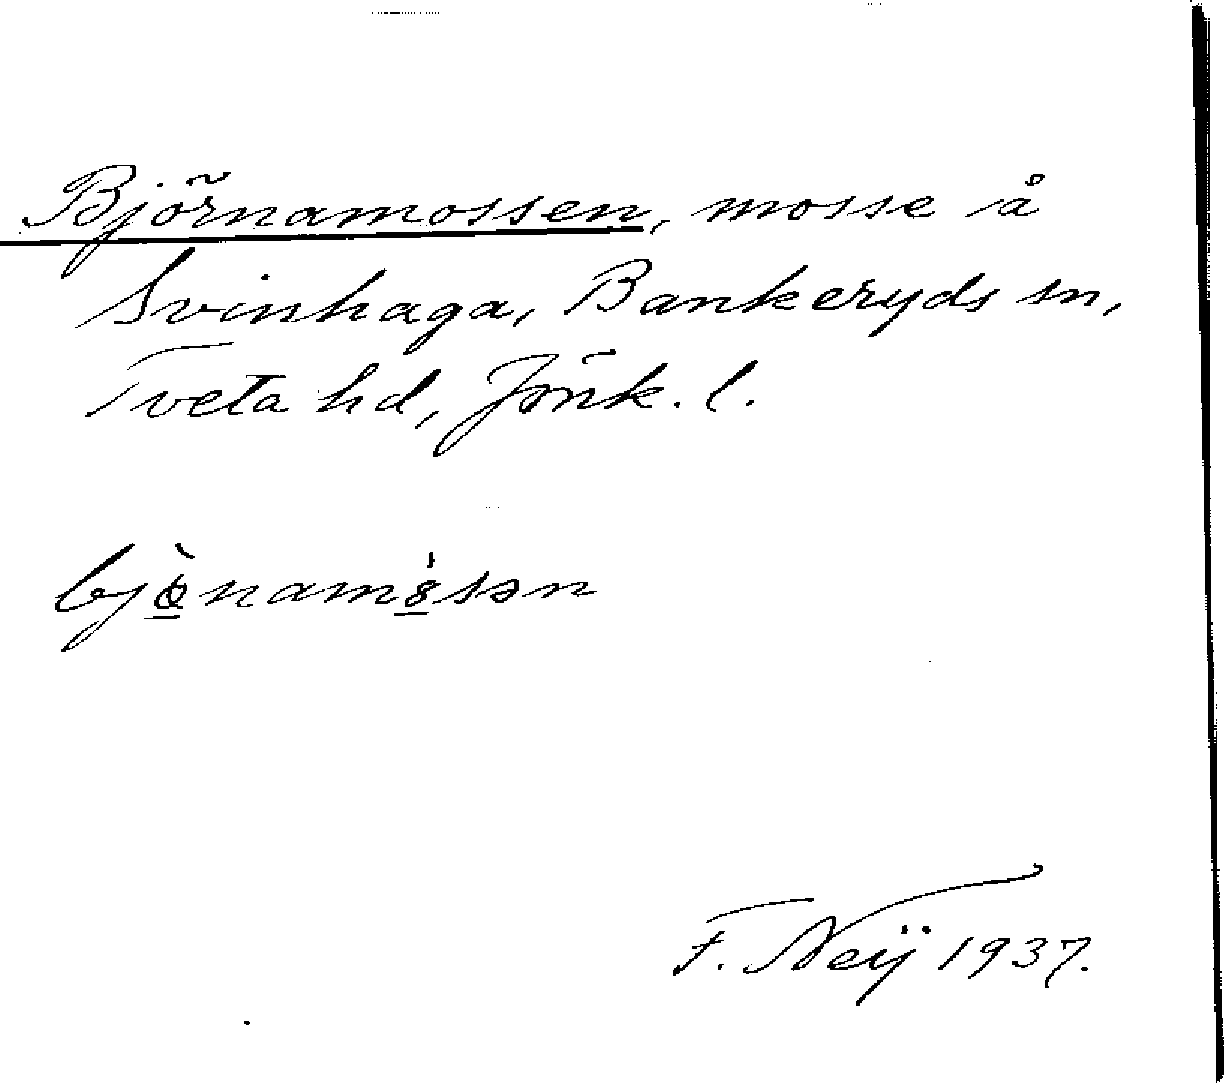 Björnamossen, mosse å
Svinhaga, Bankeryds sn,
Tveta hd, Jönk. l.
F. Neij 1937.